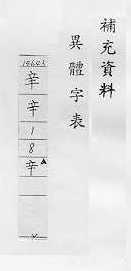 補充資料
異體字表
辛
辛
1
8
辛